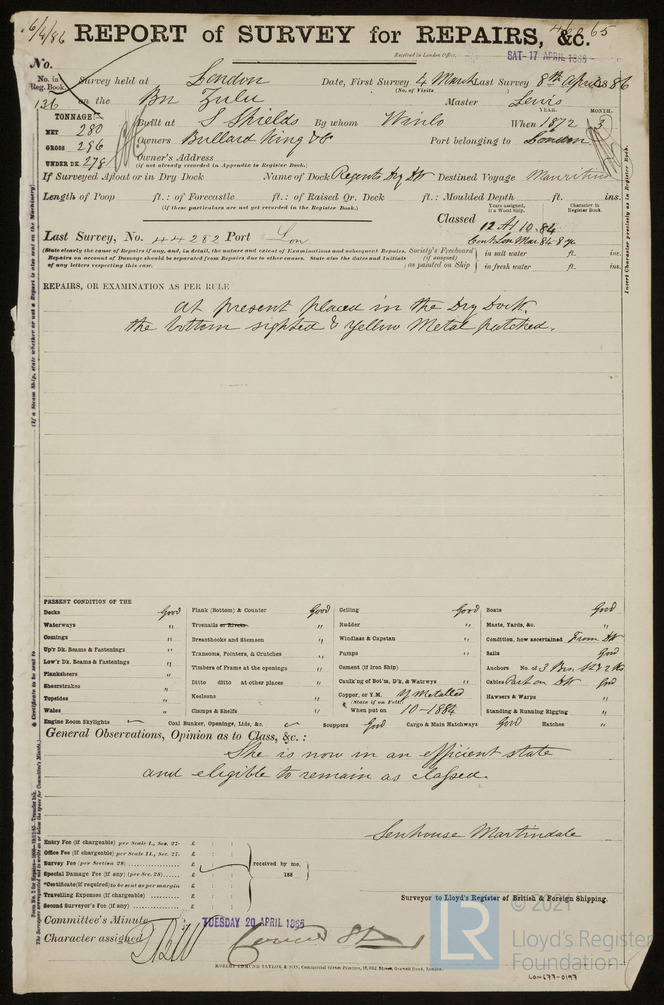 16/4/86
REPORT of SURVEY for REPAIRS, &c.
65
Received in London Office, SAT-17 APRIL 1886
No.
No. in Reg. Book. Survey held at London Date, First Survey 4 March Last Survey 8th April 1886
(No. of Visits
136 on the Bn Zulu Master Lewis
TONNAGE:— Built at S Shields By whom Winlo When 1872 3
YEAR. MONTH.
NET 280
GROSS 296 Owners Bullard King & Co Port belonging to London
UNDER DK. 278 Owner's Address
(if not already recorded in Appendix to Register Book.)
If Surveyed Afloat or in Dry Dock Name of Dock Regents Dry Dk Destined Voyage Mauritius
Length of Poop ft.: of Forecastle ft.: of Raised Qr. Deck ft.: Moulded Depth ft. ins.
(if these particulars are not yet recorded in the Register Book.)
Years assigned, if a Wood Ship. Character in Register Book.
Classed 12 A1 10.84
Last Survey, No. 44282 Port Lon Cont. Lon Mar. 84-8 ys
(State clearly the cause of Repairs if any, and, in detail, the nature and extent of Examinations and subsequent Repairs. Repairs on account of Damage should be separated from Repairs due to other causes. State also the dates and Initials of any letters respecting this case.
Society's Freeboard (if assigned) as painted on Ship
in salt water ft. ins.
in fresh water ft. ins.
Insert Character precisely as in Register Book.
REPAIRS, OR EXAMINATION AS PER RULE
At present placed in the Dry Dock.
the bottom sighted & Yellow Metal patched.
(If a Steam Ship, state whether or not a Report is also sent on the Machinery)
PRESENT CONDITION OF THE
Decks Good Plank (Bottom) & Counter Good Ceiling Good Boats Good
Waterways " Treenails or Rivets " Rudder " Masts, Yards, &c. "
Comings " Breasthooks and Stemson " Windlass & Capstan " Condition, how ascertained From Dk
Up'r Dk. Beams & Fastenings " Transoms, Pointers, & Crutches " Pumps " Sails Good
Low'r Dk. Beams & Fastenings " Timbers of Frame at the openings " Cement (if Iron Ship) Anchors No. of 3 Brs.
Planksheers " Ditto ditto at other places " Caulk'ng of Bot'm, D'k, & Watrwys " Cables Part on Dk Good
Sheerstrakes " Keelsons " Copper, or Y.M. Y Metalled Hawsers & Warps "
Topsides " (State if on Felt)
Wales " Clamps & Shelfs " When put on 10-1884 Standing & Running Rigging "
Engine Room Skylights Coal Bunker, Openings, Lids, &c. Scuppers Good Cargo & Main Hatchways Good Hatches "
General Observations, Opinion as to Class, &c.:
She is now in an efficient state
and eligible to remain as classed.
Senhouse Martindale
Entry Fee (if chargeable) per Scale I., Sec. 27- £
Office Fee (if chargeable) per Scale II., Sec. 27. £
Survey Fee (per Section 28) £ received by me,
Special Damage Fee (if any) (per Sec. 28) £ 188
*Certificate (if required) to be sent as per margin £
Travelling Expenses (if chargeable) £
Second Surveyor's Fee (if any) £
Surveyor to Lloyd's Register of British & Foreign Shipping.
Committee's Minute TUESDAY 20 APRIL 1886
Character assigned
ROBERT EDMUND TAYLOR & SON, Commercial Steam Printers, 19, Old Street, Goswell Road, London.
LR
© 2021
Lloyd's Register
Foundation
LON677-0197